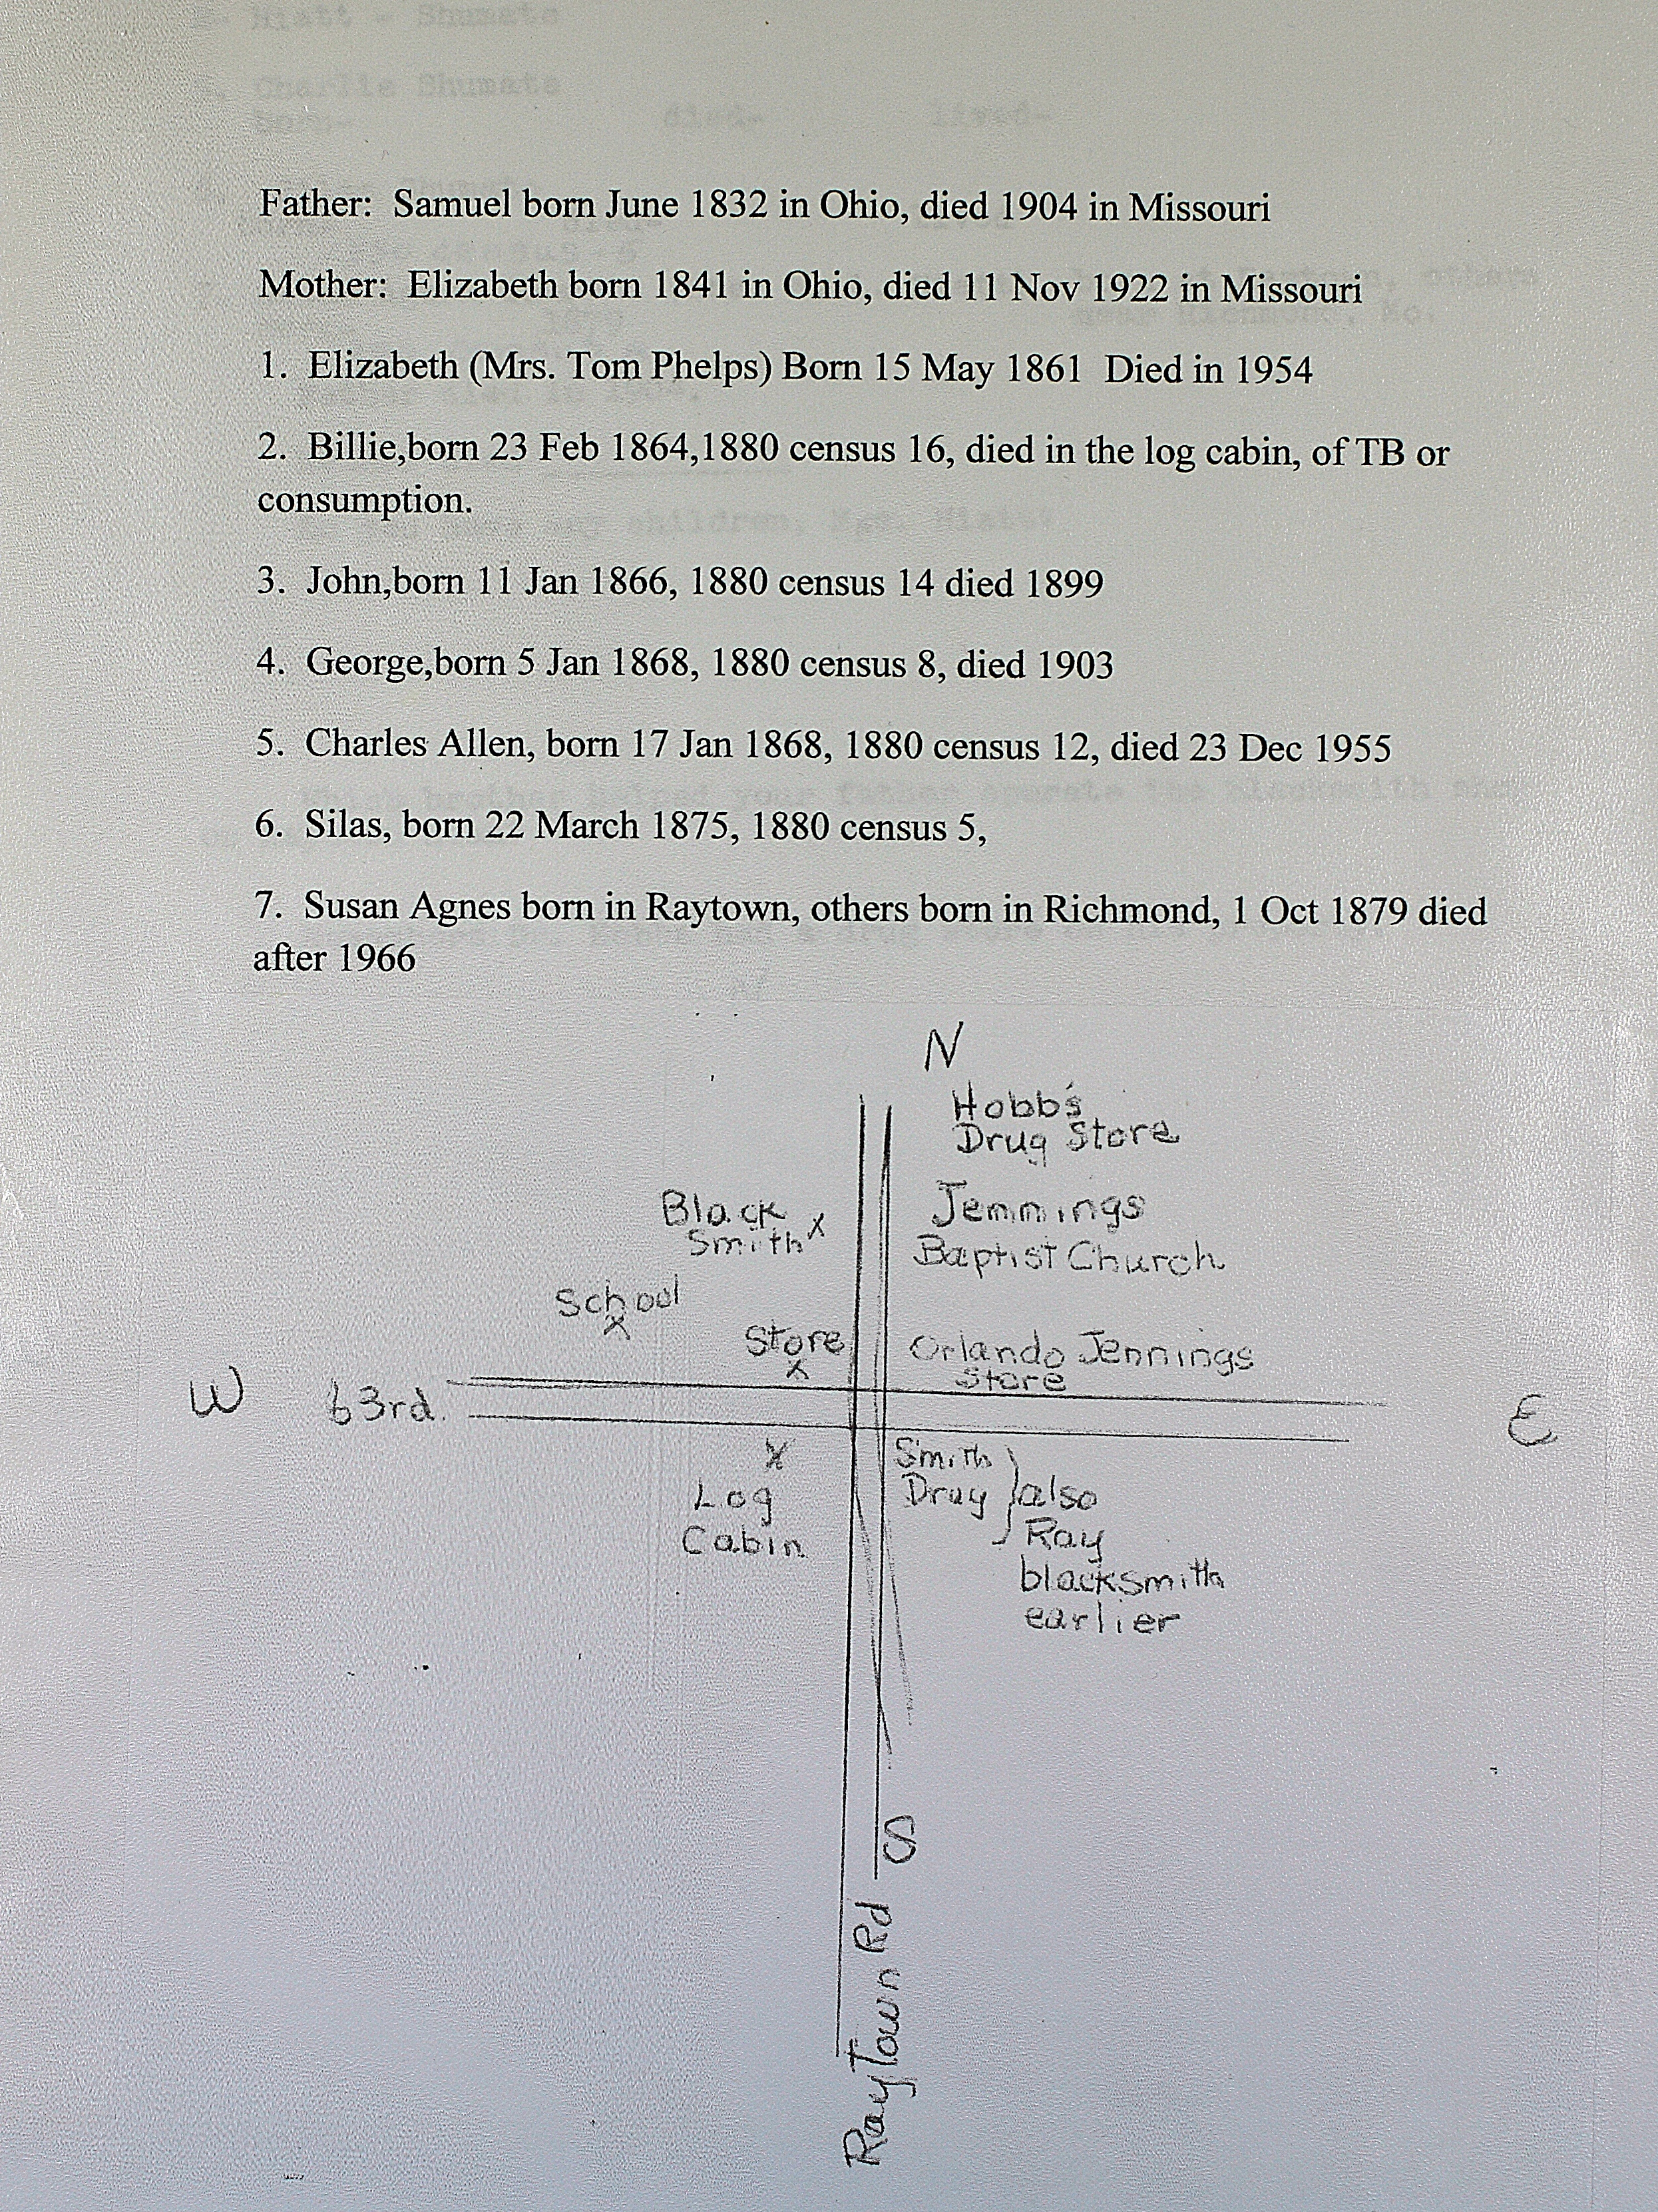 Hiatt - Shumate
Charlie Shumate
Born- died- lived-
Father:  Samuel born June 1832 in Ohio, died 1904 in Missouri
Mother:  Elizabeth born 1841 in Ohio, died 11 Nov 1922 in Missouri
1.  Elizabeth (Mrs. Tom Phelps) Born 15 May 1861  Died in 1954
2.  Billie,born 23 Feb 1864,1880 census 16, died in the log cabin, of TB or
consumption.
3.  John,born 11 Jan 1866, 1880 census 14 died 1899
4.  George,born 5 Jan 1868, 1880 census 8, died 1903
5.  Charles Allen, born 17 Jan 1868, 1880 census 12, died 23 Dec 1955
6.  Silas, born 22 March 1875, 1880 census 5,
7.  Susan Agnes born in Raytown, others born in Richmond, 1 Oct 1879 died
after 1966
N
Hobb's
Drug Store
Black
Smith x
Jennings
Baptist Church
School
x
Store
x
Orlando Jennings
Store
W
63rd.
E
x
Log
Cabin
Smith
Drug
also
Ray
blacksmith
earlier
S
RayTown Rd